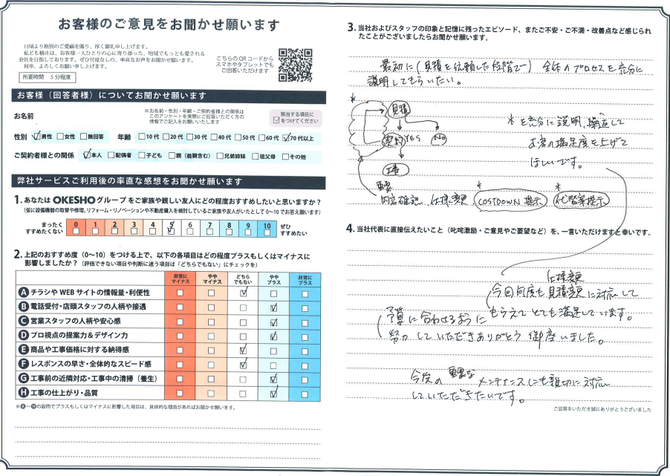 お客様のご意見をお聞かせ願います
日頃より格別のご愛顧を賜り、厚く御礼申し上げます。
こちらのQRコードから
スマホやタブレットでも
ご回答いただけます
所要時間 5分程度
お客様（回答者様）についてお聞かせ願います
お名前
※お名前・性別・年齢・ご契約者様との関係は
このアンケートを実施にご回答いただく方の
情報でご記入をお願いします
該当する項目に
をつけてください
性別 男性 女性 無回答 年齢 10代 20代 30代 40代 50代 60代 70代以上
ご契約者様との関係 本人 配偶者 子ども 親（他親含む） 兄弟姉妹 祖父母 その他
弊社サービスご利用後の率直な感想をお聞かせ願います
1. あなたはOKESHOグループをご家族や親しい友人にどの程度おすすめしたいと思いますか？
（仮に設備機器の取替や修理、リフォーム・リノベーションや不動産購入を検討しているご家族や友人がいたとして0～10でお答え願います）
まったく
すすめたくない
0 1 2 3 4 5 6 7 8 9 10
ぜひ
すすめたい
2. 上記のおすすめ度（0～10）をつける上で、以下の各項目はどの程度プラスもしくはマイナスに
影響しましたか？（評価できない項目や判断に迷う項目は「どちらでもない」にチェックを）
非常に
マイナス
やや
マイナス
どちら
でもない
やや
プラス
非常に
プラス
A チラシやWEBサイトの情報量・利便性
B 電話受付・店頭スタッフの人柄や接遇
C 営業スタッフの人柄や安心感
D プロ視点の提案力＆デザイン力
E 商品や工事価格に対する納得感
F レスポンスの早さ・全体的なスピード感
G 工事前の近隣対応・工事中の清掃（養生）
H 工事の仕上がり・品質
※A～Hの設問でプラスもしくはマイナスに影響した項目は、具体的な理由があればお聞かせ願います。
3. 当社およびスタッフの印象と記憶に残ったエピソード、またご不安・ご不満・改善点など感じられ
たことがございましたらお聞かせ願います。
最初に（見積を依頼した段階で）全体のプロセスを充分に
説明してもらいたい。
見積
契約 YES No
*を充分に説明、
お客の満足度を上げて
ほしいです。
工事
内容確認、仕様変更 COSTDOWN提示
4. 当社代表に直接伝えたいこと（叱咤激励・ご意見やご要望など）を、一言いただけますと幸いです。
仕様変更
今回何度も見積変更に対応して
もらえてとても満足しています。
予算に合わせるように
努力していただきありがとう御座いました。
今後の メンテナンスにも親切に対応
していただきたいです。
ご回答をいただき誠にありがとうございました